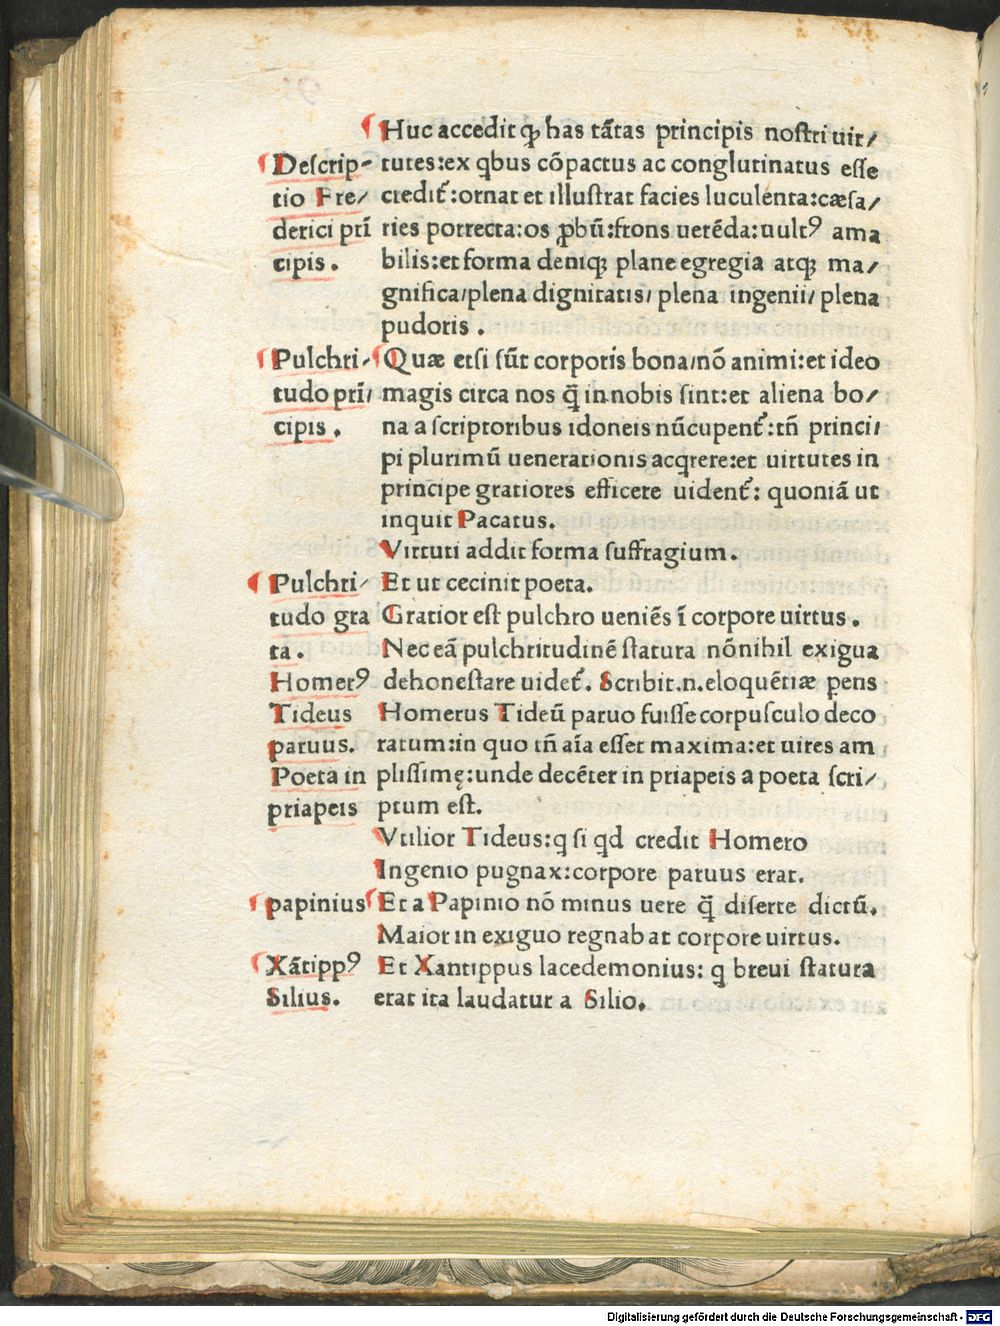 Huc accedit qꝫ has tãtas principis nostri uir/
tutes: ex qbus cõpactus ac conglutinatus esse
credit᷒: ornat et illustrat facies luculenta: cæsa/
ries porrecta: os ꝓbũ: frons uerẽda: uultꝰ ama
bilis: et forma deniqꝫ plane egregia atqꝫ ma/
gnifica/ plena dignitatis/ plena ingenii/ plena
pudoris.
Descrip-
tio Fre/
derici pri̅
cipis.
Quæ etsi sũt corporis bona/ nõ animi: et ideo
magis circa nos q̃ in nobis sint: et aliena bo/
na a scriptoribus idoneis nũcupent᷒: tñ princi/
pi plurimũ uenerationis acqrere: et uirtutes in
principe gratiores efficere uident᷒: quoniã ut
inquit Pacatus.
Virtuti addit forma suffragium.
Pulchri/
tudo pri̅/
cipis.
Et ut cecinit poeta.
Gratior est pulchro ueniẽs i̅ corpore uirtus.
Nec eã pulchritudinẽ statura nõnihil exigua
dehonestare uidet᷒. Scribit.n. eloquẽtiæ pens
Homerus Tideũ paruo fuisse corpusculo deco
ratum: in quo tñ aĩa esset maxima: et uires am
plissimę: unde decẽter in priapeis a poeta scri/
ptum est.
Vtilior Tideus: q si qd credit Homero
Ingenio pugnax: corpore paruus erat.
Pulchri/
tudo gra
ta.
Homerꝰ
Tideus
paruus.
Poeta in
priapeis
Et a Papinio nõ minus uere q̃ diserte dictũ.
Maior in exiguo regnabat corpore uirtus.
papinius
Et Xantippus lacedemonius: q breui statura
erat ita laudatur a Silio.
Xãtippꝰ
Silius.
Digitalisierung gefördert durch die Deutsche Forschungsgemeinschaft - DFG